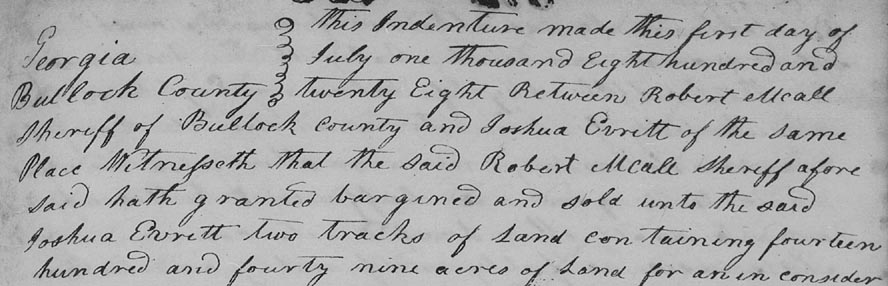 this Indenture made this first day of
Georgia July one thousand Eight hundred and
Bullock County twenty Eight Between Robert McCall
Sheriff of Bullock County and Joshua Evritt of the same
Place Witnesseth that the said Robert McCall Sheriff afore
said hath granted bargined and sold unto the said
Joshua Evritt two tracks of Land containing fourteen
hundred and fourty nine acres of Land for an in consider